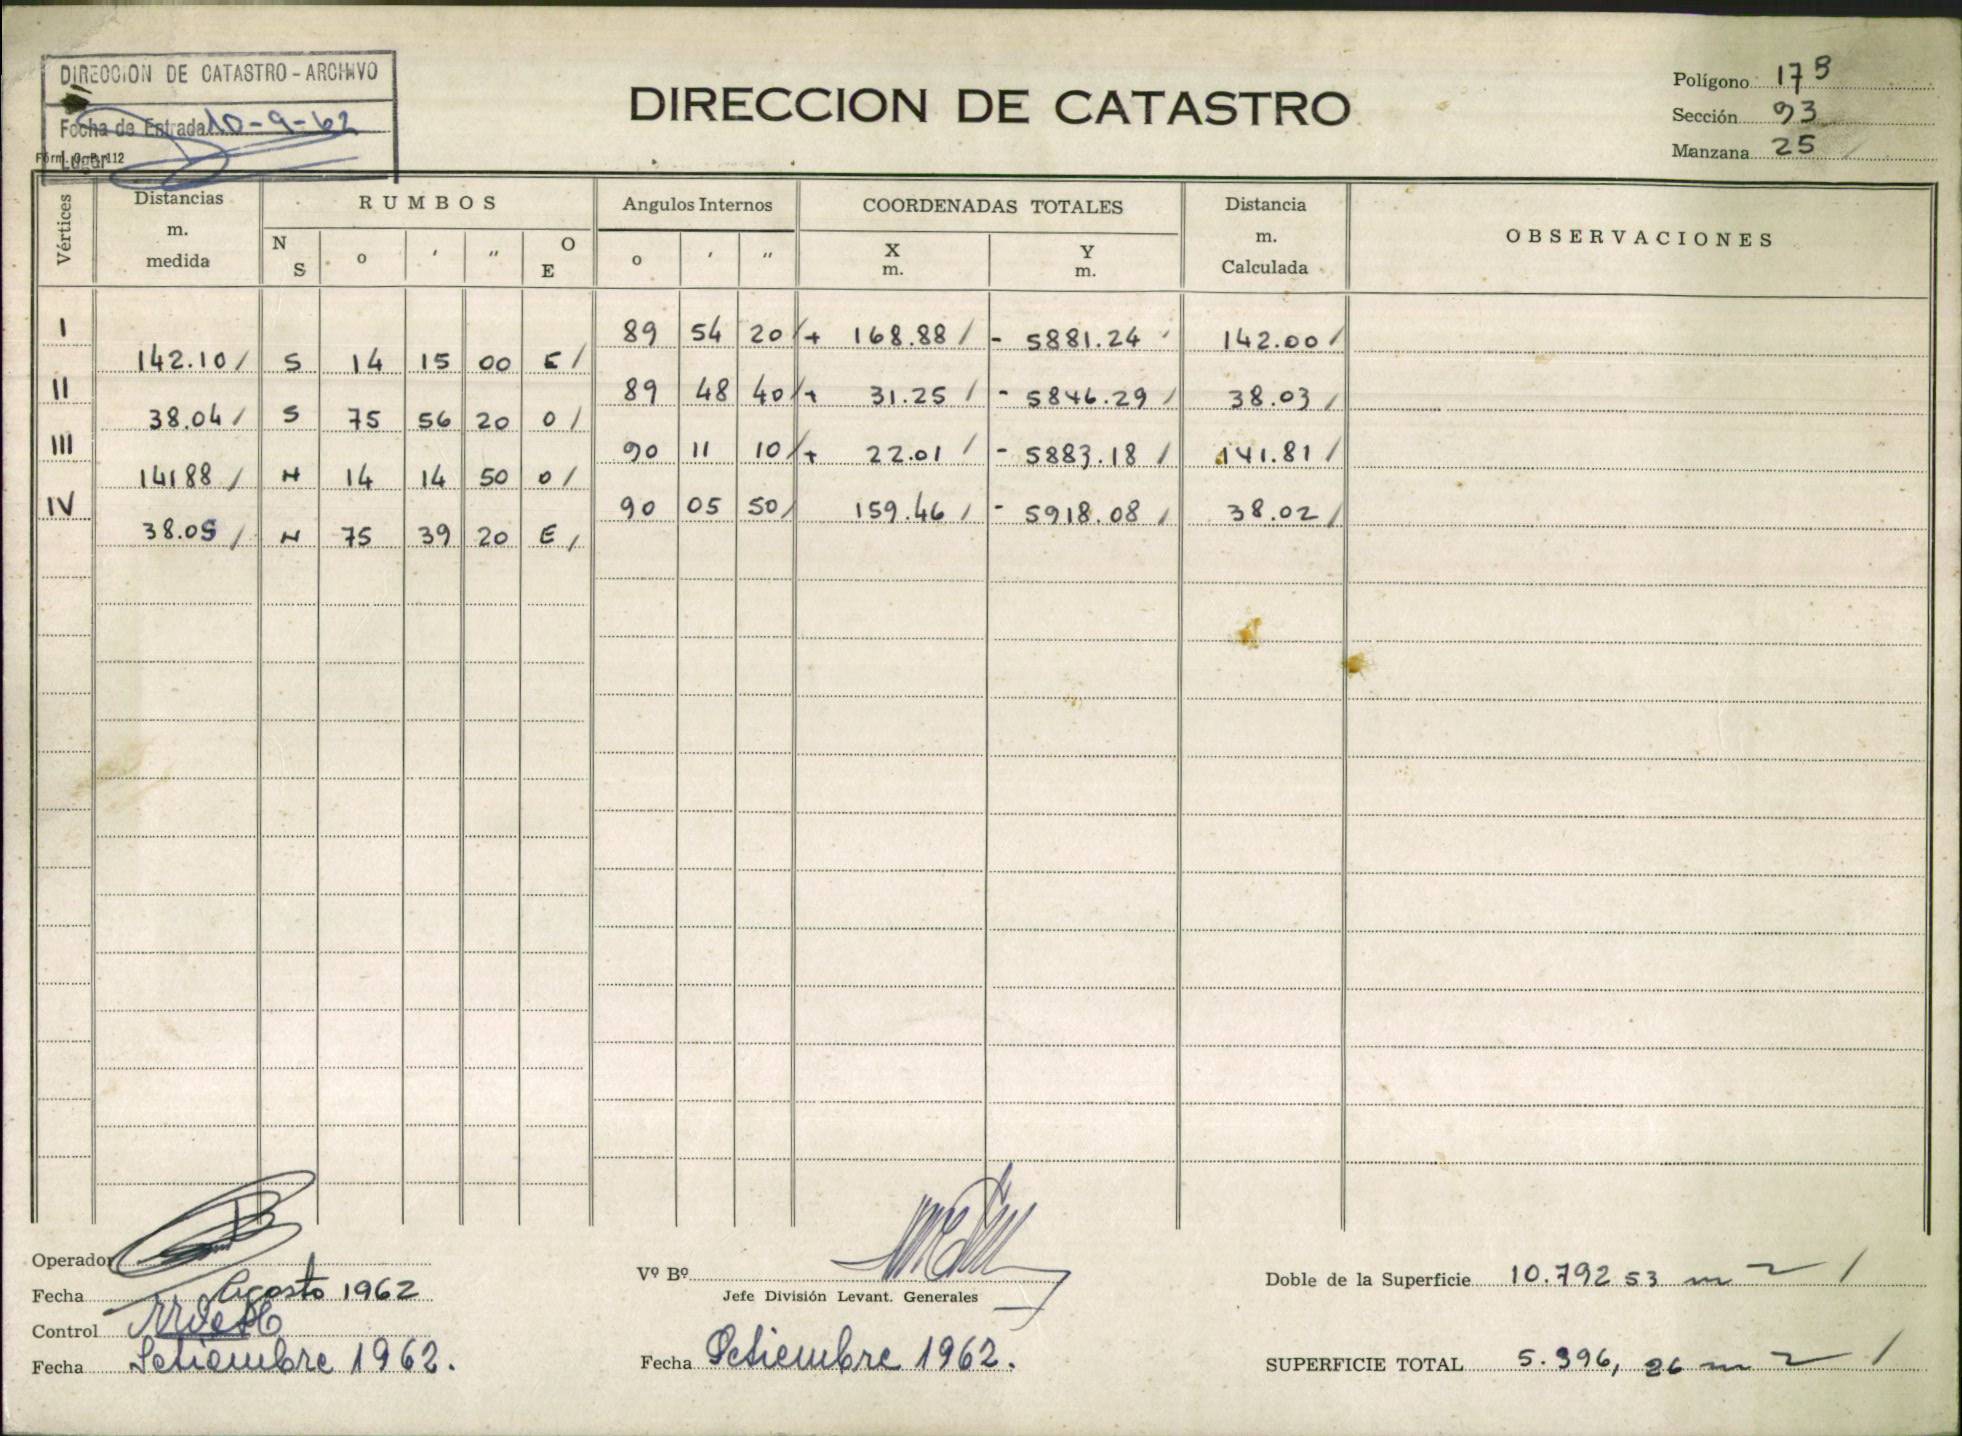 DIRECCION DE CATASTRO - ARCHIVO
Fecha de Entrada 10-9-62
Lugar
Form. O. P. 112
DIRECCION DE CATASTRO
Polígono 173
Sección 93
Manzana 25
Vértices
Distancias m. medida
RUMBOS
N S o ' " O E
Angulos Internos
o ' "
COORDENADAS TOTALES
X m. Y m.
Distancia m. Calculada
OBSERVACIONES
I 89 54 20 / + 168.88 / - 5881.24 / 142.00 /
142.10 / S 14 15 00 E /
II 89 48 40 / + 31.25 / - 5846.29 / 38.03 /
38.04 / S 75 56 20 O /
III 90 11 10 / + 22.01 / - 5883.18 / 141.81 /
14188 / N 14 14 50 O /
IV 90 05 50 / 159.46 / - 5918.08 / 38.02 /
38.05 / N 75 39 20 E /
Operador
Fecha Agosto 1962
Control
Fecha Setiembre 1962.
Vº Bº
Jefe División Levant. Generales
Fecha Setiembre 1962.
Doble de la Superficie 10.792 53 m 2 /
SUPERFICIE TOTAL 5.396, 26 m 2 /